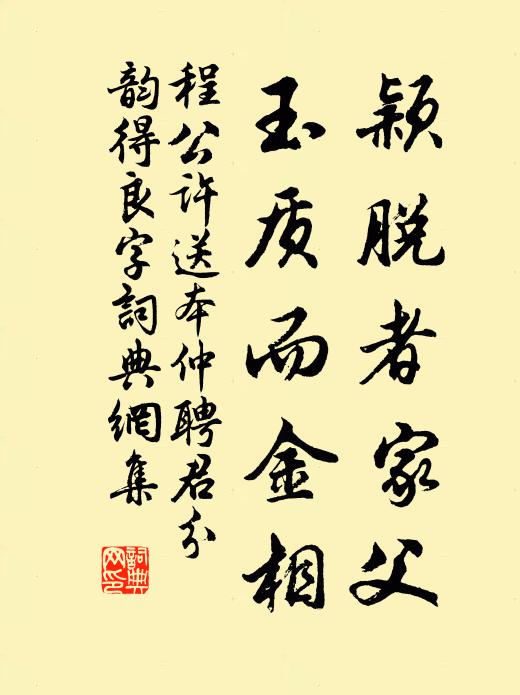 颖脱者家父
玉质而金相
程公许送本仲聘君分
韵得良字詞典網集
詞典
网印